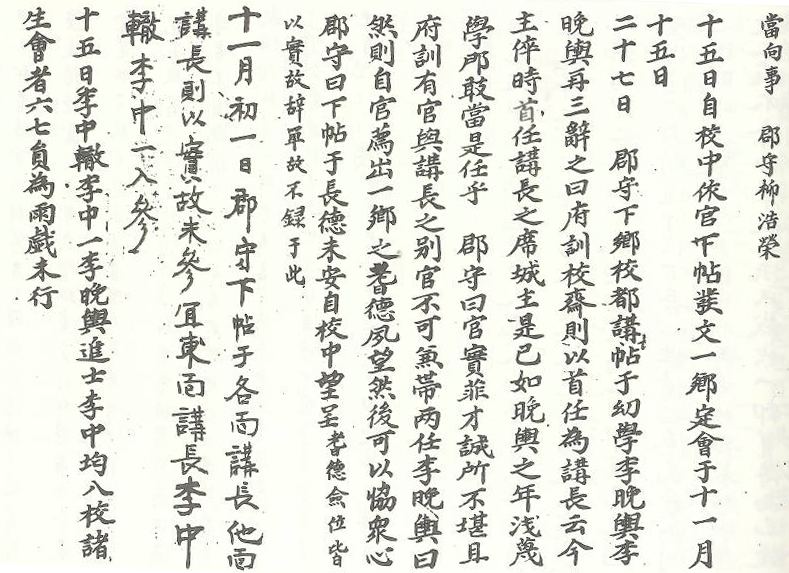 當向事　郡守柳浩榮
十五日自校中依官下帖發文一鄉定會于十一月
十五日
二十七日　郡守下鄉校都講帖于幼學李晚輿李
晚輿再三辭之曰府訓校齋則以首任為講長云今
主倅時首任講長之席城主是已如晚輿之年淺蔑
學郎敢當是任乎　郡守曰官實菲才誠所不堪且
府訓有官與講長之別官不可兼帶兩任李晚輿曰
然則自官薦出一鄉之耆德夙望然後可以恊衆心
郡守曰下帖于長德未安自校中望呈 耆德僉位皆
以實故辞單故不録于此
十一月初一日郡守下帖于各面講長他面
講長則以實故未參宜東面講長李中
轍李中一入參
十五日李中轍李中一李晚輿進士李中均入校諸
生會者六七員為雨戱未行